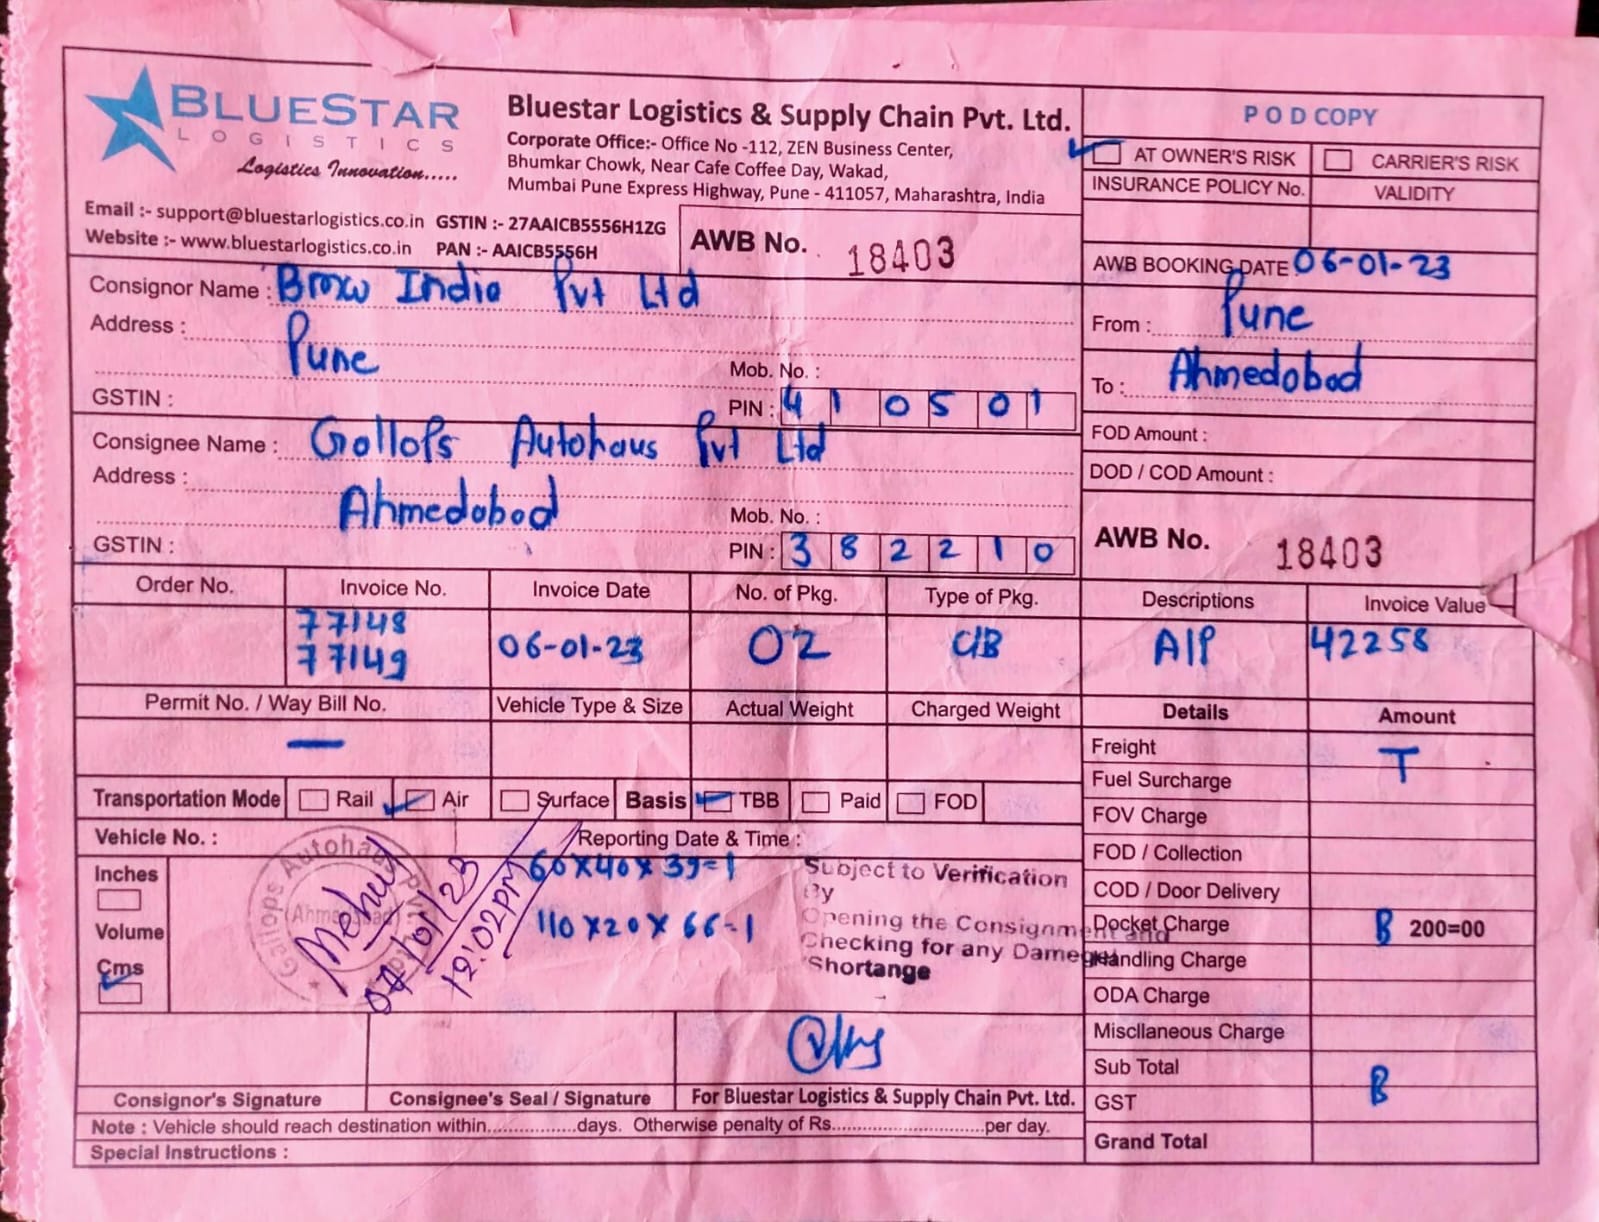 BLUESTAR
LOGISTICS
Logistics Innovation.....
Bluestar Logistics & Supply Chain Pvt. Ltd.
Corporate Office:- Office No -112, ZEN Business Center,
Bhumkar Chowk, Near Cafe Coffee Day, Wakad,
Mumbai Pune Express Highway, Pune - 411057, Maharashtra, India
Email :- support@bluestarlogistics.co.in GSTIN :- 27AAICB5556H1ZG
Website :- www.bluestarlogistics.co.in PAN :- AAICB5556H
AWB No. 18403
POD COPY
AT OWNER'S RISK CARRIER'S RISK
INSURANCE POLICY No. VALIDITY
AWB BOOKING DATE 06-01-23
From : Pune
To : Ahmedobod
FOD Amount :
DOD / COD Amount :
AWB No. 18403
Consignor Name : Bmw India Pvt Ltd
Address : Pune
Mob. No. :
GSTIN : PIN : 410501
Consignee Name : Gollops Autohaus Pvt Ltd
Address : Ahmedobod
Mob. No. :
GSTIN : PIN : 382210
Order No. Invoice No. Invoice Date No. of Pkg. Type of Pkg. Descriptions Invoice Value
77148
77149 06-01-23 02 C/B A/P 42258
Permit No. / Way Bill No. Vehicle Type & Size Actual Weight Charged Weight
—
Transportation Mode Rail Air Surface Basis TBB Paid FOD
Vehicle No. : Reporting Date & Time :
Inches
Volume
Cms
60x40x39=1
110x20x66-1
Gallops Autohaus Pvt. Ltd.
(Ahmedabad)
Mehul
07/01/23
12:02PM
Subject to Verification
By
Opening the Consignment and
Checking for any Damege
Shortange
Details Amount
Freight T
Fuel Surcharge
FOV Charge
FOD / Collection
COD / Door Delivery
Docket Charge B 200=00
Handling Charge
ODA Charge
Miscllaneous Charge
Sub Total B
GST
Grand Total
Consignor's Signature Consignee's Seal / Signature For Bluestar Logistics & Supply Chain Pvt. Ltd.
Note : Vehicle should reach destination within................days. Otherwise penalty of Rs............................per day.
Special Instructions :